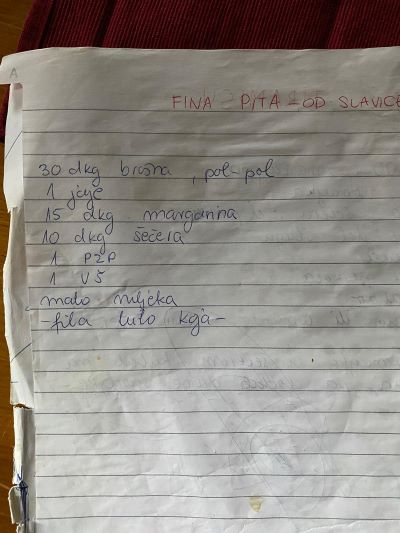 A
FINA PITA OD SLAVICE
30 dkg brašna, pol-pol
1 jaje
15 dkg margarina
10 dkg šećera
1 PZP
1 VŠ
malo mljeka
-fila